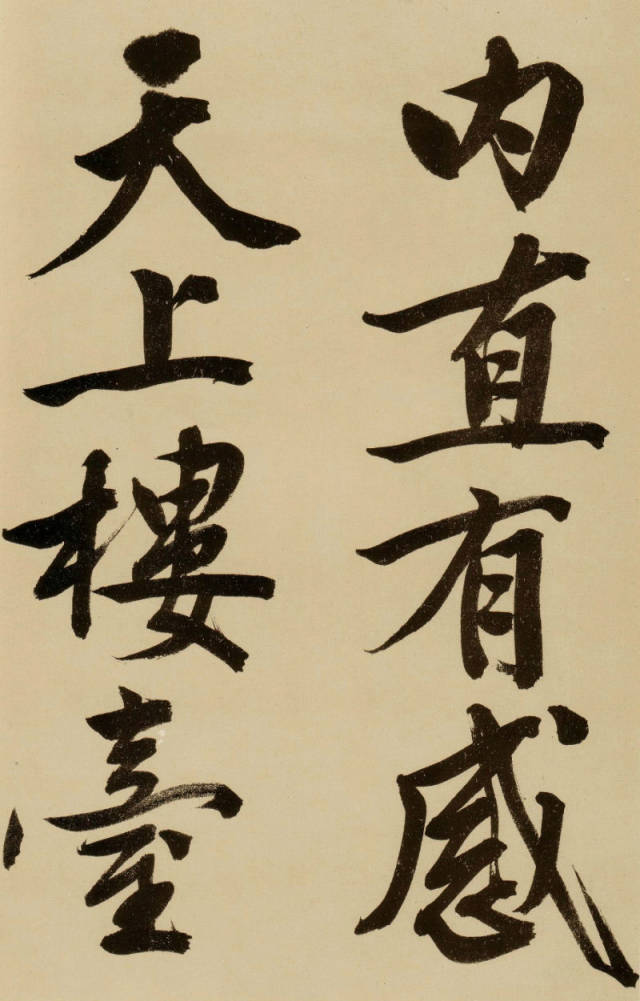 內直有感
天上樓臺